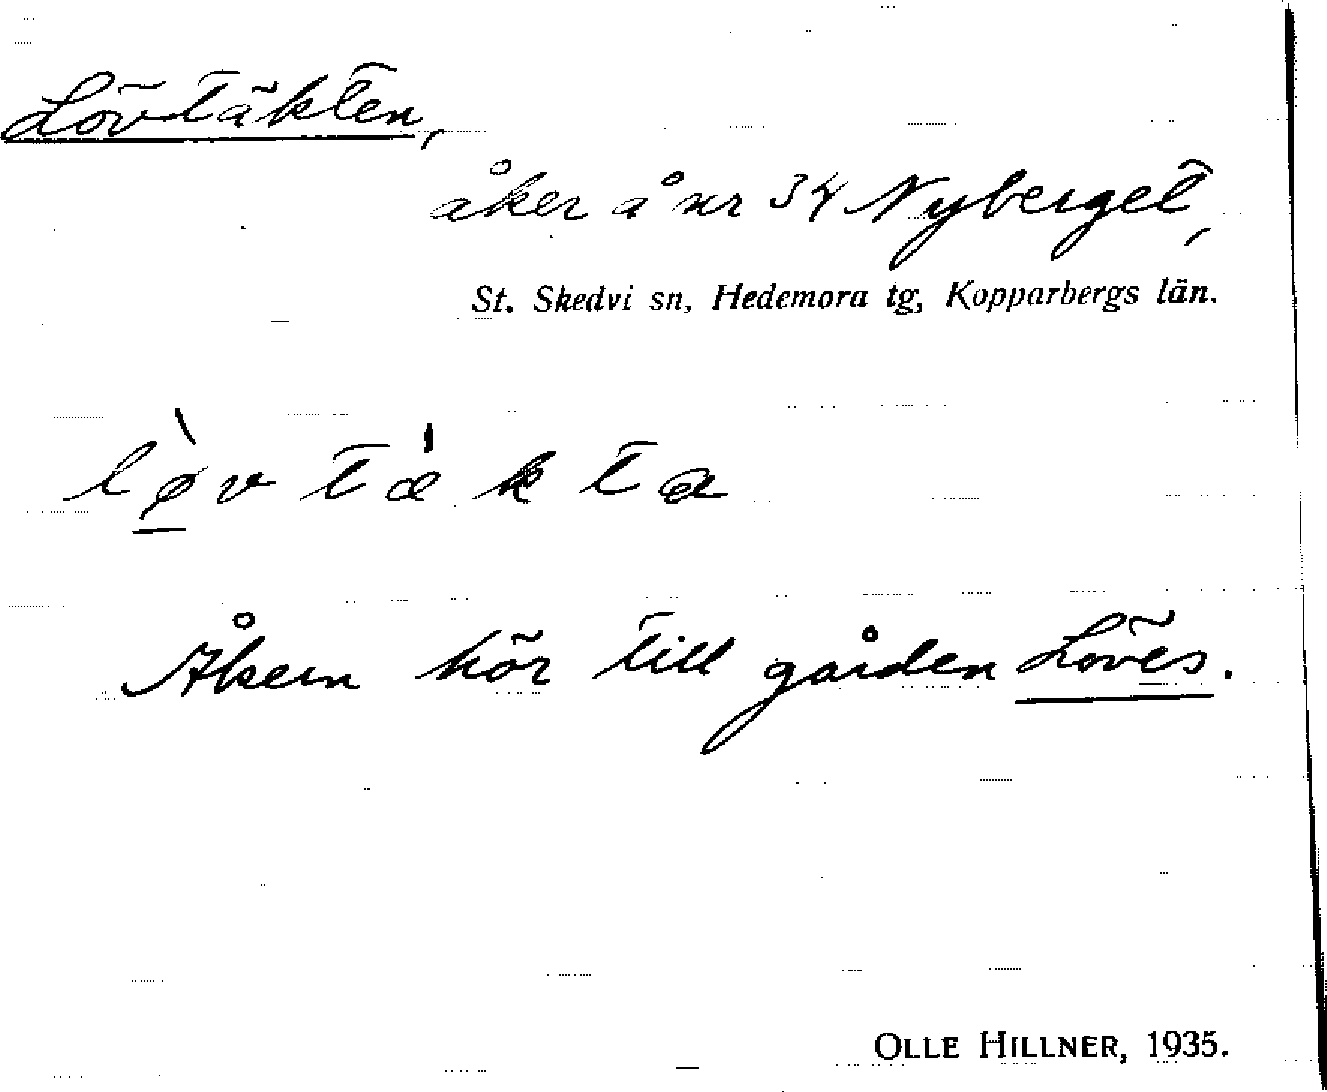 Lövtäkten,
åker å nr 34 Nyberget,
St. Skedvi sn, Hedemora tg, Kopparbergs län.
lø̲̀vtæ̍kta
Åkern hör till gården Löves.
OLLE HILLNER, 1935.